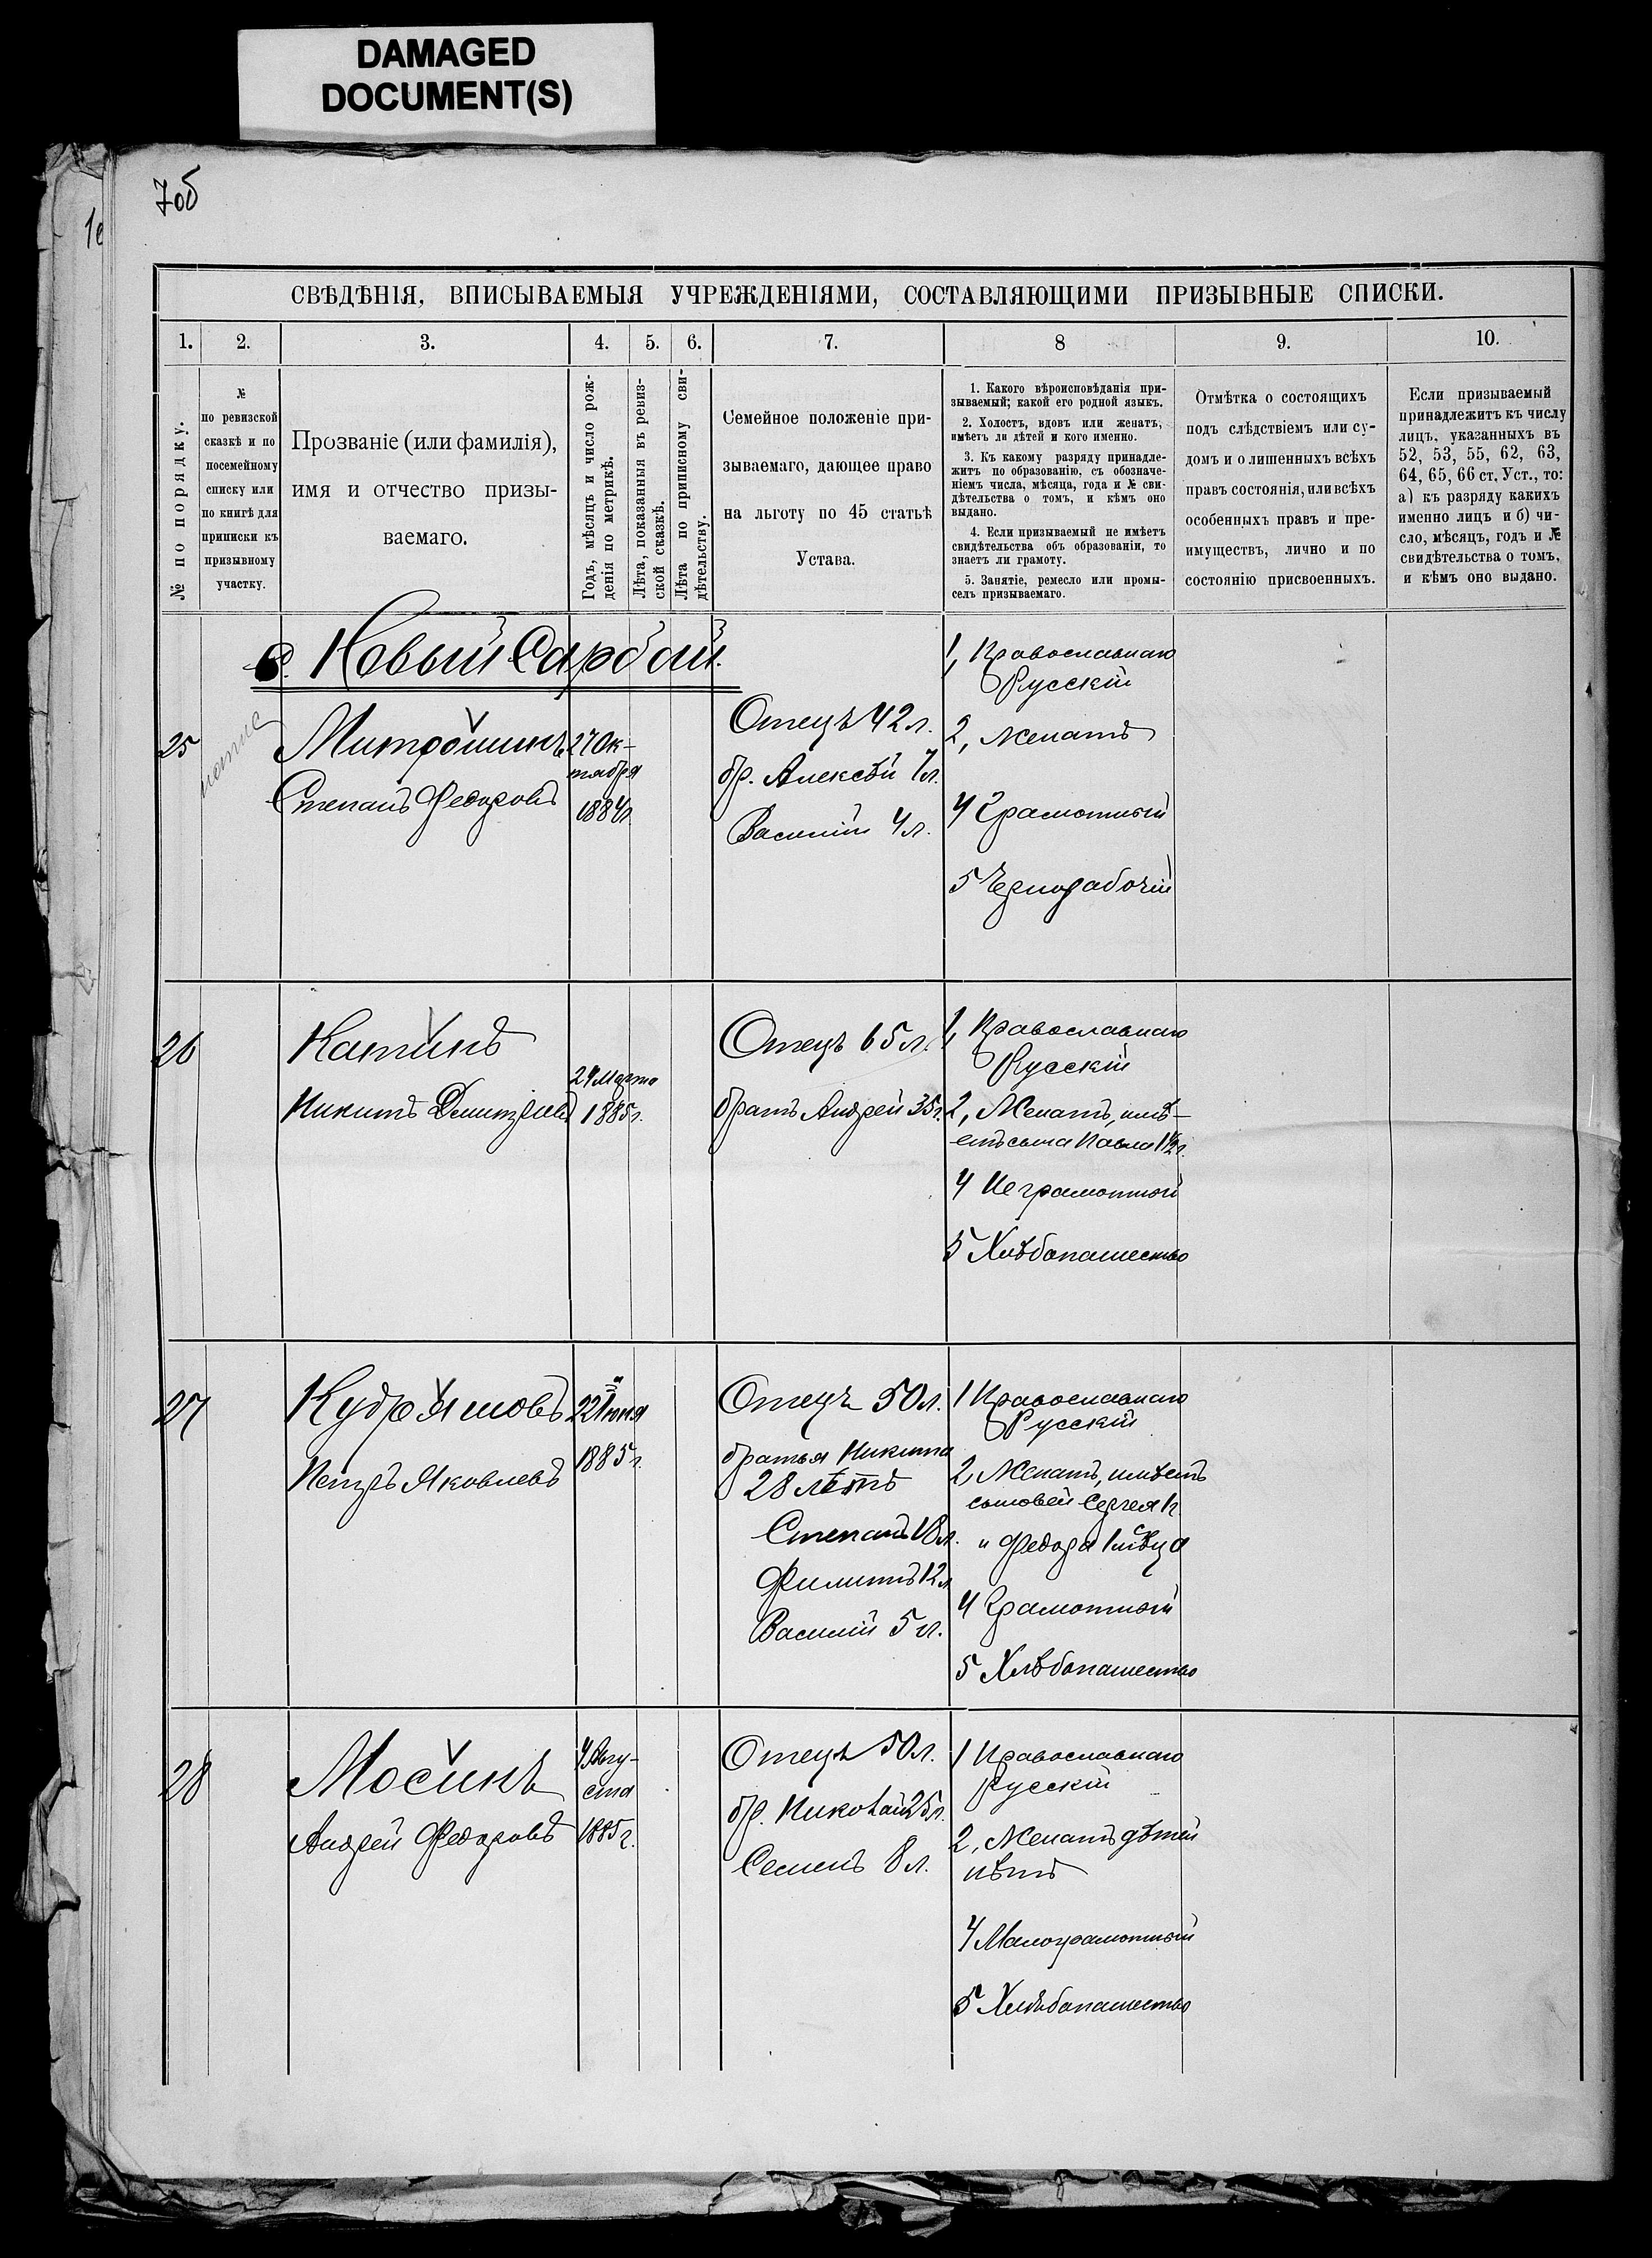 DAMAGED
DOCUMENT(S)
7об
СВѢДѢНІЯ, ВПИСЫВАЕМЫЯ УЧРЕЖДЕНІЯМИ, СОСТАВЛЯЮЩИМИ ПРИЗЫВНЫЕ СПИСКИ.
1. 2. 3. 4. 5. 6. 7. 8 9. 10.
№ по порядку.
№
по ревизской
сказкѣ и по
посемейному
списку или
по книгѣ для
приписки къ
призывному
участку.
Прозваніе (или фамилія),
имя и отчество призы-
ваемаго.
Годъ, мѣсяцъ и число рож-
денія по метрикѣ.
Лѣта, показанныя въ ревиз-
ской сказкѣ.
Лѣта по приписному сви-
дѣтельству.
Семейное положеніе при-
зываемаго, дающее право
на льготу по 45 статьѣ
Устава.
1. Какого вѣроисповѣданія при-
зываемый; какой его родной языкъ.
2. Холостъ, вдовъ или женатъ,
имѣетъ ли дѣтей и кого именно.
3. Къ какому разряду принадле-
житъ по образованію, съ обозначе-
ніемъ числа, мѣсяца, года и № сви-
дѣтельства о томъ, и кѣмъ оно
выдано.
4. Если призываемый не имѣетъ
свидѣтельства объ образованіи, то
знаетъ ли грамоту.
5. Занятіе, ремесло или промы-
селъ призываемаго.
Отмѣтка о состоящихъ
подъ слѣдствіемъ или су-
домъ и о лишенныхъ всѣхъ
правъ состоянія, или всѣхъ
особенныхъ правъ и пре-
имуществъ, лично и по
состоянію присвоенныхъ.
Если призываемый
принадлежитъ къ числу
лицъ, указанныхъ въ
52, 53, 55, 62, 63,
64, 65, 66 ст. Уст., то:
а) къ разряду какихъ
именно лицъ и б) чи-
сло, мѣсяцъ, годъ и №
свидѣтельства о томъ,
и кѣмъ оно выдано.
с. Новый Сарбай.
25
Митрошинъ
Степанъ Федоровъ
27 Ок-
тября
1884г.
Отецъ 42 л.
бр. Алексѣй 7 л.
Василій 4 л.
1, Православнаго
Русскій
2, Женатъ
4 Грамотный
5 Чернорабочій
26
Катинъ
Никита Дмитріевъ
24 Марта
1885г.
Отецъ 65 л.
братъ Андрей 35 г.
1, Православнаго
Русскій
2, Женатъ, имѣ-
етъ сына Павла 1½ г.
4 Неграмотный
5 Хлѣбопашество
27
Кудряшовъ
Петръ Яковлевъ
22 Іюня
1885 г.
Отецъ 50 л.
братья Никита
28 лѣтъ
Степанъ 18 л.
Филиппъ 12 л.
Василій 5 л.
1 Православнаго
Русскій
2, Женатъ, имѣетъ
сыновей Сергея 1 г.
и Федора 1 мѣсяца
4 Грамотный
5 Хлѣбопашество
28
Мосинъ
Андрей Федоровъ
4 Авгу-
ста
1885 г.
Отецъ 50 л.
бр. Николай 25 л.
Семенъ 8 л.
1 Православнаго
Русскій
2, Женатъ дѣтей
нѣтъ
4 Малограмотный
5 Хлѣбопашество